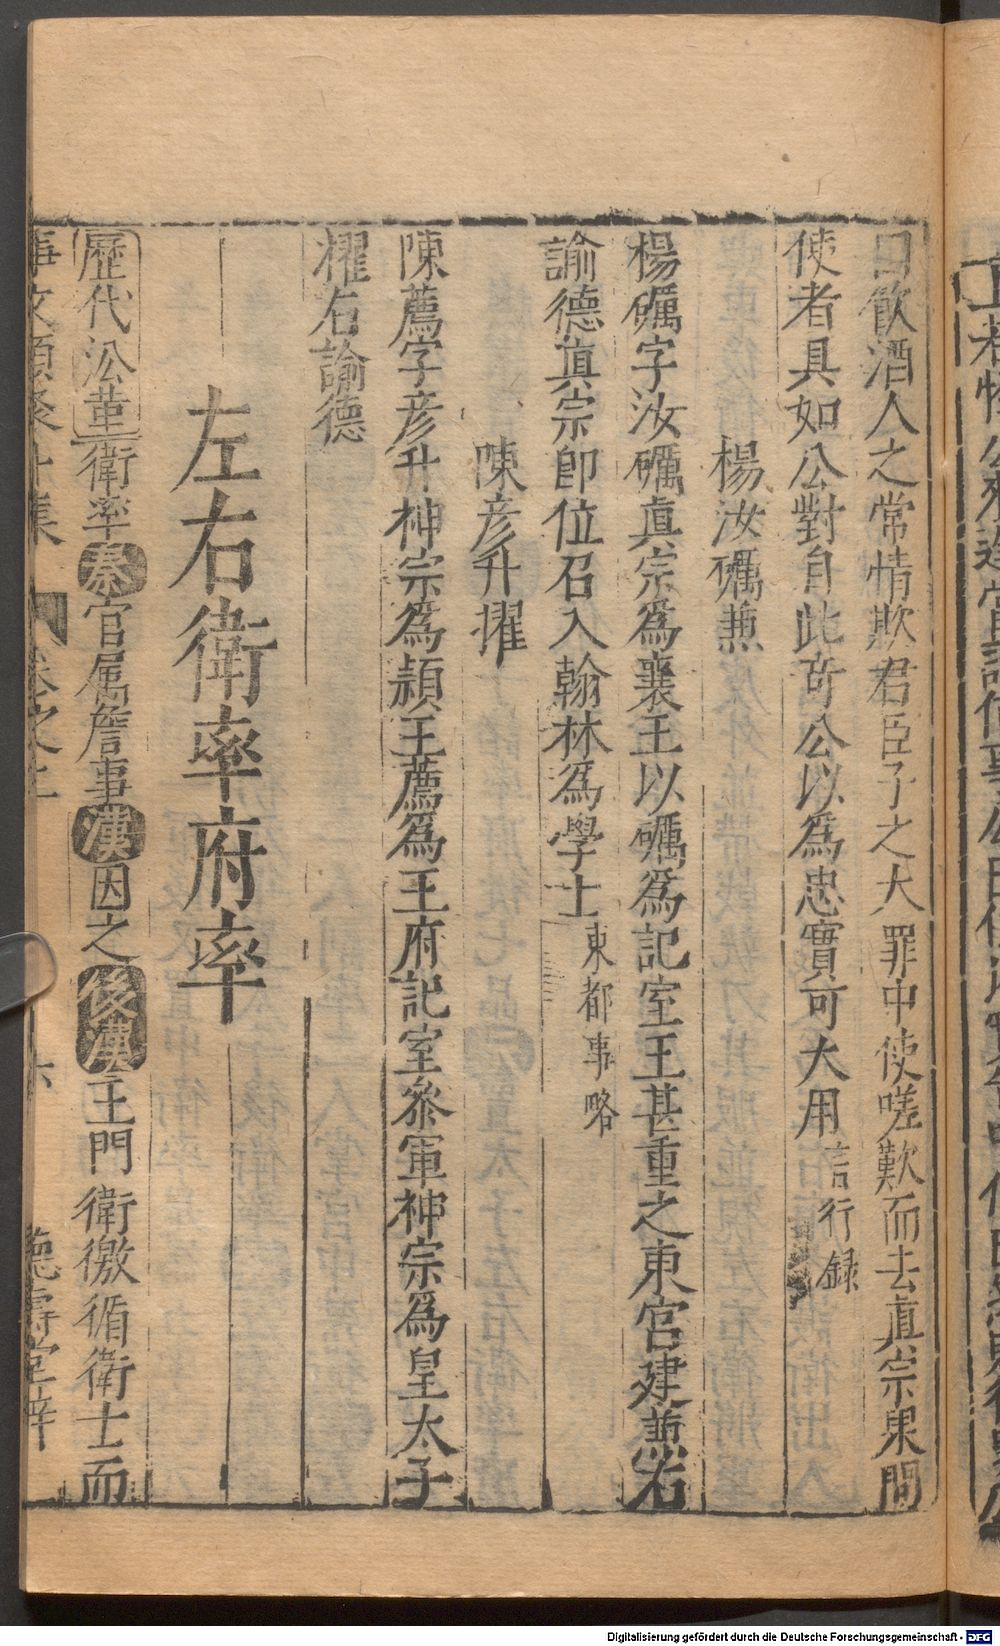 曰飲酒人之常情欺君臣子之大罪中使嗟歎而去真宗果問
使者具如公對自此奇公以為忠實可大用言行録
楊汝礪兼
楊礪字汝礪真宗為襄王以礪為記室王甚重之東宮建兼右
諭德真宗卽位召入翰林為學士東都事略
陳彦升擢
陳薦字彦升神宗為頴王薦為王府記室叅軍神宗為皇太子
擢右諭德
左右衛率府率
歷代沿革衛率秦官属詹事漢因之後漢主門衛徼循衛士而
事文類聚 集 卷之 六 德壽堂梓
Digitalisierung gefördert durch die Deutsche Forschungsgemeinschaft - DFG